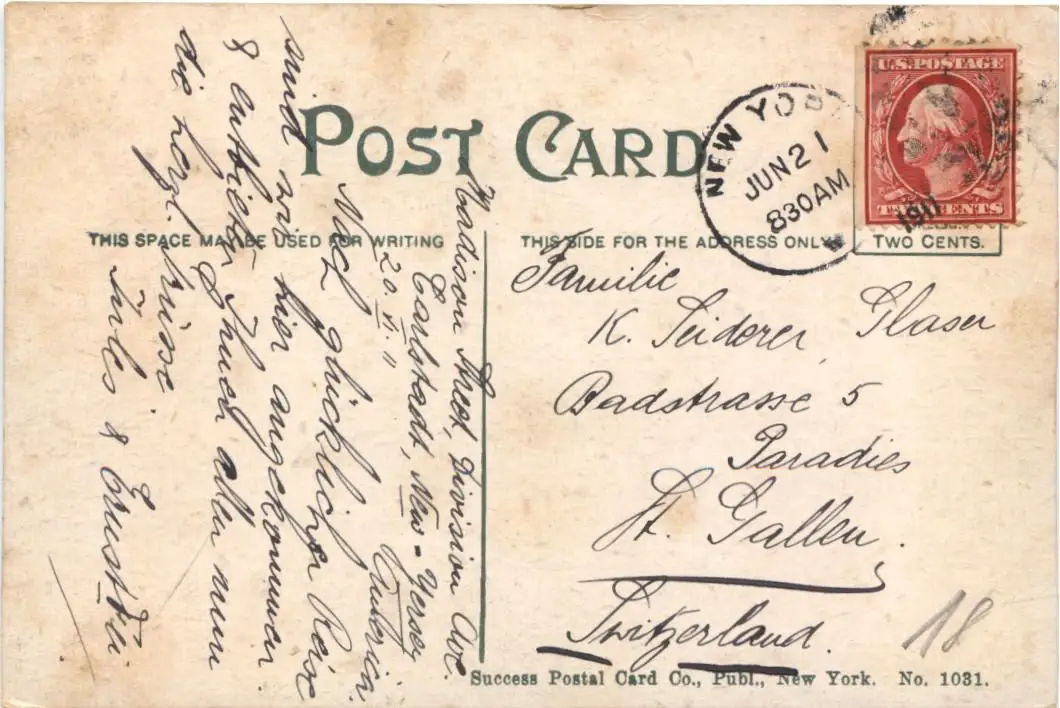 POST CARD
THIS SPACE MAY BE USED FOR WRITING
THIS SIDE FOR THE ADDRESS ONLY
U.S. POSTAGE
TWO CENTS
TWO CENTS.
NEW YOR
JUN 21
830 AM
1911
Madison Street, Division Ave.
Carlstadt, New-Yersey
20. VI. 11 America.
Nach glücklicher Reise
sind wir hier angekommen
& entbieten Ihnen allen nun
die herzl. Grüsse
Jules &
Familie
K. Seiderer, Glaser
Badstrasse 5
Paradies
St. Gallen.
Switzerland.
18
Success Postal Card Co., Publ., New York. No. 1031.